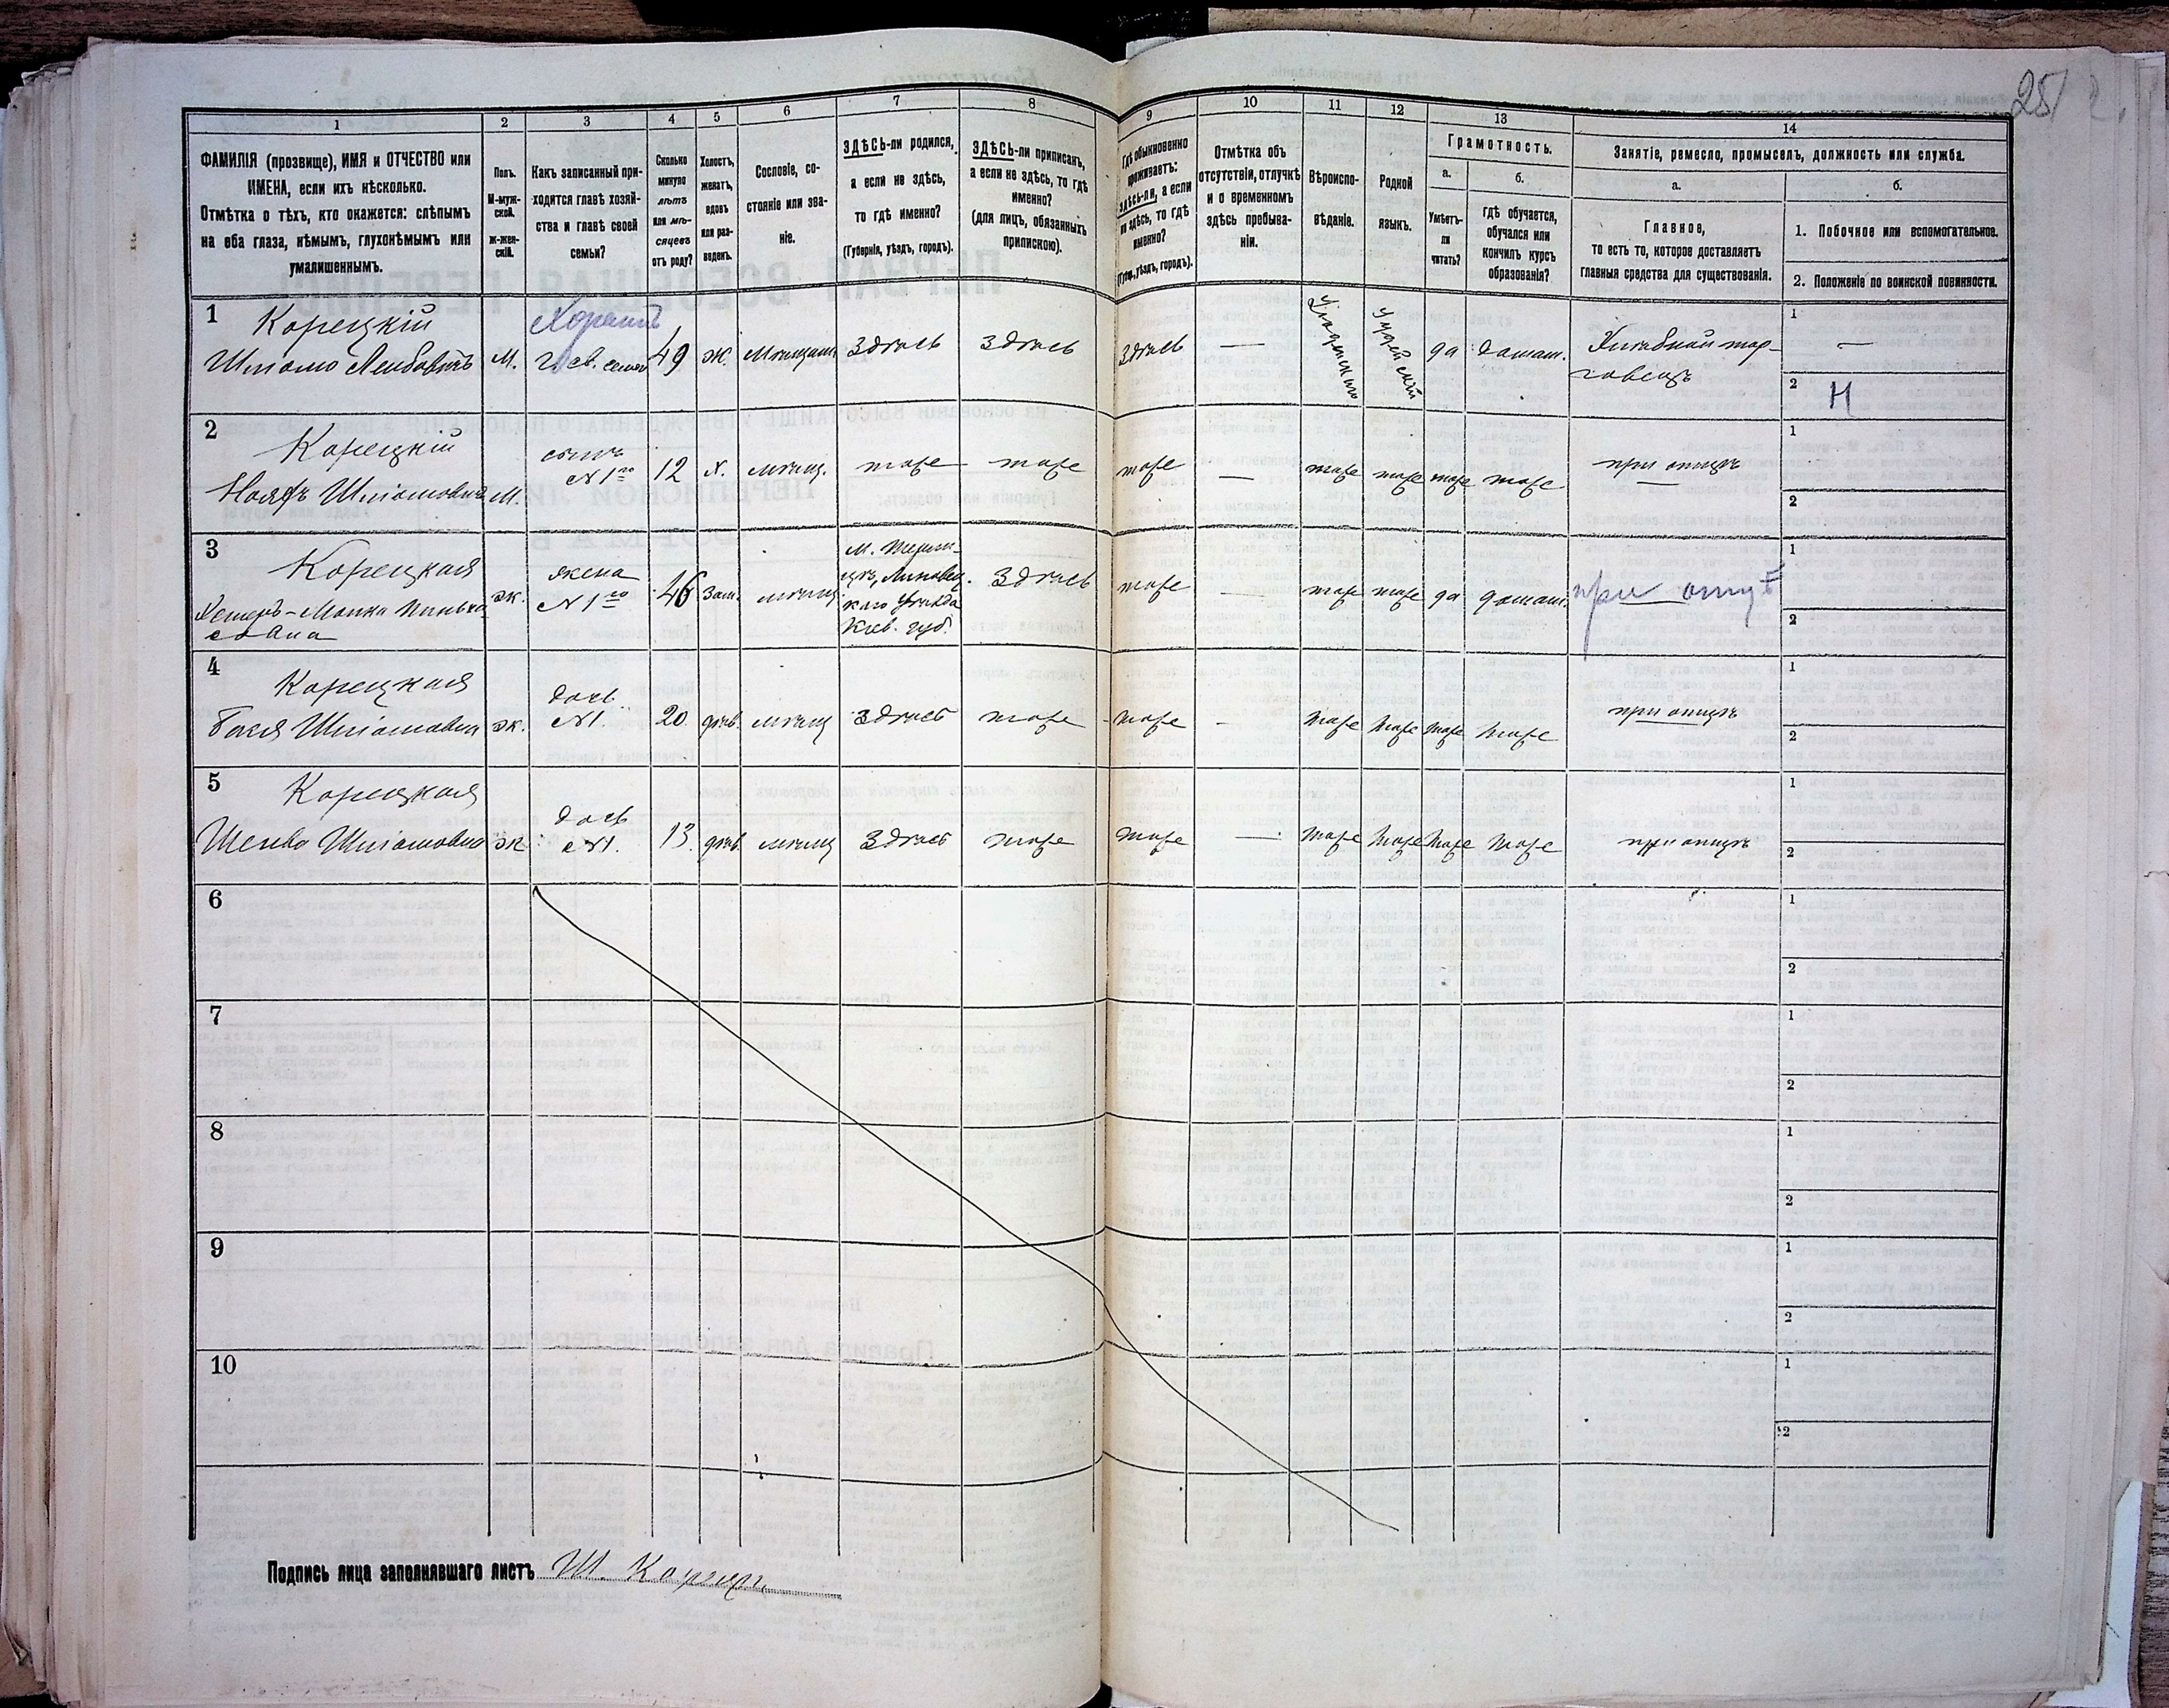 25
1
2
3
4
5
6
7
8
9
10
11
12
13
14
ФАМИЛІЯ (прозвище), ИМЯ и ОТЧЕСТВО или
ИМЕНА, если ихъ нѣсколько.
Отмѣтка о тѣхъ, кто окажется: слѣпымъ
на оба глаза, нѣмымъ, глухонѣмымъ или
умалишеннымъ.
Полъ.
М-муж-
ской.
Ж-жен-
скій.
Какъ записанный при-
ходится главѣ хозяй-
ства и главѣ своей
семьи?
Сколько
минуло
лѣтъ
или мѣ-
сяцевъ
отъ роду?
Холостъ,
женатъ,
вдовъ
или раз-
веденъ.
Сословіе, со-
стояніе или зва-
ніе.
ЗДѢСЬ-ли родился,
а если не здѣсь,
то гдѣ именно?
(Губернія, уѣздъ, городъ).
ЗДѢСЬ-ли приписанъ,
а если не здѣсь, то гдѣ
именно?
(для лицъ, обязанныхъ
припискою).
Гдѣ обыкновенно
проживаетъ:
здѣсь-ли, а если
не здѣсь, то гдѣ
именно?
(Губ., уѣздъ, городъ).
Отмѣтка объ
отсутствіи, отлучкѣ
и о временномъ
здѣсь пребыва-
ніи.
Вѣроиспо-
вѣданіе.
Родной
языкъ.
Грамотность.
а.
Умѣетъ-
ли
читать?
б.
гдѣ обучается,
обучался или
кончилъ курсъ
образованія?
Занятіе, ремесло, промыселъ, должность или служба.
а.
Главное,
то есть то, которое доставляетъ
главныя средства для существованія.
б.
1. Побочное или вспомогательное.
2. Положеніе по воинской повинности.
1
Корецкій
Шліомо Лейбовичъ
М.
г. св. семьи
49
Ж.
Здѣсь
Здѣсь
Здѣсь
—
Іудейскій
да
домаш.
тор-
говецъ
1
—
2
Н
2
Корецкій
Шліомовичъ
М.
сынъ
№ 1го
12
Х.
мѣщ.
тоже
тоже
тоже
—
тоже
тоже
тоже
тоже
при отцѣ
1
2
3
Корецкая
ж.
жена
№ 1го
46
Зам.
мѣщ.
Липовец-
каго Уѣзда
Кіев. губ.
Здѣсь
тоже
тоже
тоже
да
домаш.
при
1
2
4
Корецкая
Шліомовна
ж.
дочь
№ 1.
20
дѣв.
мѣщ
Здѣсь
тоже
тоже
-
тоже
тоже
тоже
тоже
при отцѣ
1
2
5
Корецкая
Шейва Шліомовна
ж
дочь
№ 1.
13.
дѣв.
мѣщ
Здѣсь
тоже
тоже
—
тоже
тоже
тоже
тоже
при отцѣ
1
2
6
1
2
7
1
2
8
1
2
9
1
2
10
1
2
Подпись лица заполнявшаго листъ Ш. Корецкі